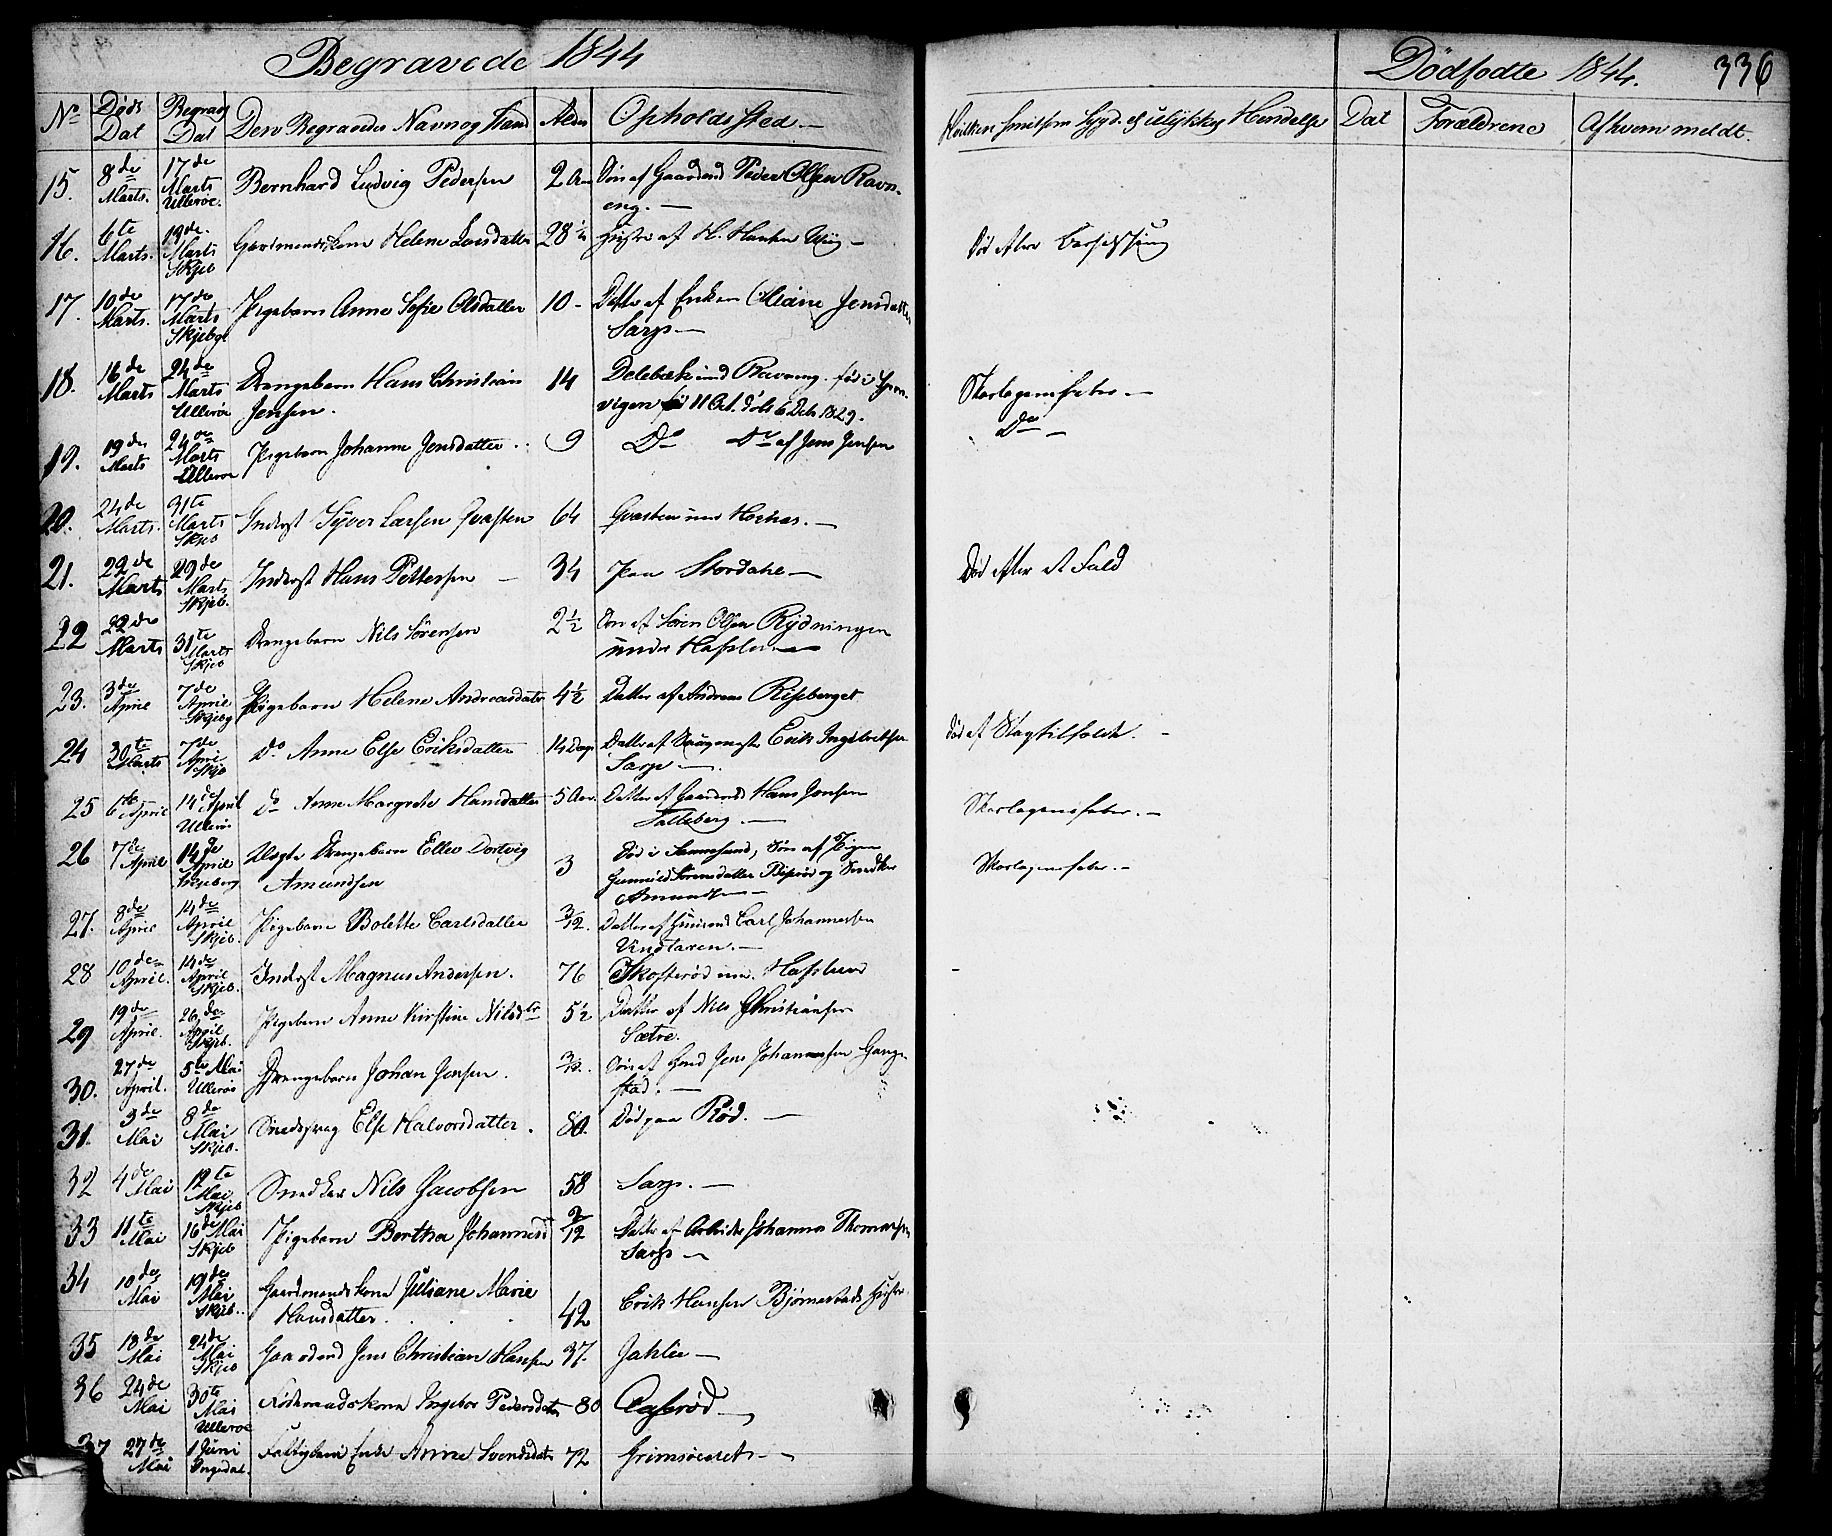 Begravede 1844
Dødfødte 1844. 336
No Døds Dat Begrav Dat Den Begravedes Navn og Stand Alder Opholdssted.
Dat Forældrene Af hvem meldt.
15. 8de Marts. 17de Marts Ullerøe. Bernhard Ludvig Pedersen 2 Aar Søn af Gaardmd Peder Olsen Ravn-
eng.
16. 6te Marts. 19de Marts Skjeb Gaardmandskone Helene Larsdatter 28 1/2 Hustru af H. Hansen
Død efter
17. 10de Marts. 17de Marts Skjebg Pigebarn Anne Sofie Olsdatter 10 Datter af Enken Oleane Jensdatter
Sarps
18. 16de Marts 24de Marts Ullerøe Drengebarn Hans Christian 14 Delebæk und Ravneng. fød i
Jensen. vigen 11 Oct. døbt 6 Debr 1829.
Skarlagensfeber.
19. 19de Marts 24de Marts Ullerøe Pigebarn Johanne Jensdatter 9 Do Do af Jens Jensen
Do
20. 24de Marts. 31te Marts Skjeb Inderst Syver Larsen Qvasten 64 Qvasten
21. 22de Marts 29de Marts Skjeb. Inderst Hans Pettersen 34 paa Stordahl
Død efter et Fald
22 22de Marts 31te Marts Skjeb Drengebarn Nils Sørensen 2 1/2 Søn af Søren Olsen Rydningen
under Hafslund
23. 3de April 7de April Skjebg Pigebarn Helene Andreasdatr 4 1/2 Datter af Andreas Riseberget
24 30te Marts 7de April Skjb Do Anne Else Eriksdatter 14 Dage Datter af Erik Ingebriktsen
Sarps
Død af Slagtilfælde.
25 6te April 14de April Ullerøe Do Anne Margrethe Hansdatter 5 Aar. Datter af Gaardmd Hans Jensen
Talleberg.
Skarlagensfeber.
26 7de April 14de April Skjeberg Uægte Drengebarn Ellev Dortvig 3 Død i Sannesund, Søn af Pigen
Amundsen Gunnild Sørensdatter og Snedker
Amundsen
Skarlagensfeber.
27. 8de April 14de April Skjeb. Pigebarn Bolette Carlsdatter 3/12. Datter af Huusmd Carl Johannesen
Vingtaren.
28 10de April. 14de April Skjeb. Inderst Magnus Andersen. 76 Skosterød un. Hafslund
29 19de April. 26de April Skjeb. Pigebarn Anne Kirstine Nilsdtr 5 1/2 Datter af Nils Christiansen
Sætre.
30. 27de April. 5te Mai Ullerøe Drengebarn Johan Jensen. Søn af Gmd Jens Johannessen Gange
stad.
31. 3de Mai 8de Mai Skjeb. Else Halvorsdatter. 80. Død paa Rød.
32 4de Mai 12te Mai Skjeb Snedker Nils Jacobsen 58 Sarps.
33 11te Mai 16de Mai Skjeb Pigebarn Berthe Johannesd 2/12 Datter af Arbeids Johannes Thomassen
Sarps
34 10de Mai 19de Mai Skjeb. Gaardmandskone Juliane Marie
Hansdatter. 42 Erik Hansen Bjørnestads Hustru
35 18de Mai 24de Mai Skjeb Gaardmd Jens Christian Hansen 37. Jahlie
36 24de Mai 30te Mai Ullerøe Føderaadskone Ingebor Pedersdatr 80 Aaserød
37 27de Mai 1 Juni Ingedal. Fattiglem Enke Anne Svendsdatr 72 Grimsøeiet